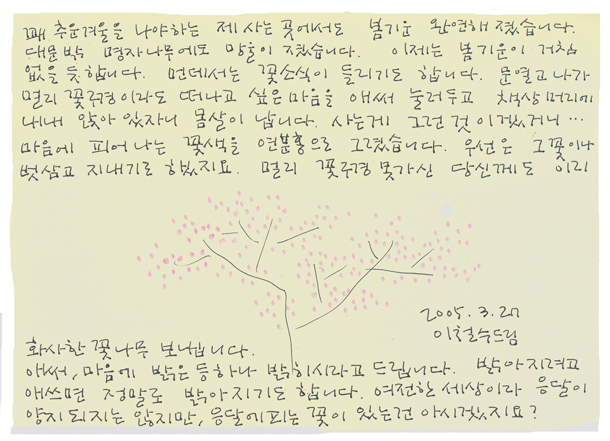 꽤 추운겨울을 나야하는 제 사는 곳에서도 봄기운 완연해 졌습니다.
대문밖 명자나무에도 망울이 졌습니다. 이제는 봄기운이 거침
없을 듯 합니다. 먼데서는 꽃소식이 들리기도 합니다. 문열고 나가
멀리 꽃구경이라도 떠나고 싶은 마음을 애써 눌러두고 책상머리에
내내 앉아 있자니 몸살이 납니다. 사는게 그런것 이겠거니…
마음에 피어나는 꽃색을 연분홍으로 그렸습니다. 우선은 그꽃이나
벗삼고 지내기로 하였지요. 멀리 꽃구경 못가신 당신께도 이리
2005. 3. 27
이철수드림
화사한 꽃나무 보냅니다.
애써, 마음에 밝은 등하나 밝히시라고 드립니다. 밝아지려고
애쓰면 정말로 밝아지기도 합니다. 여전한 세상이라 응달이
양지되지는 않지만, 응달에 피는 꽃이 있는건 아시겠지요?